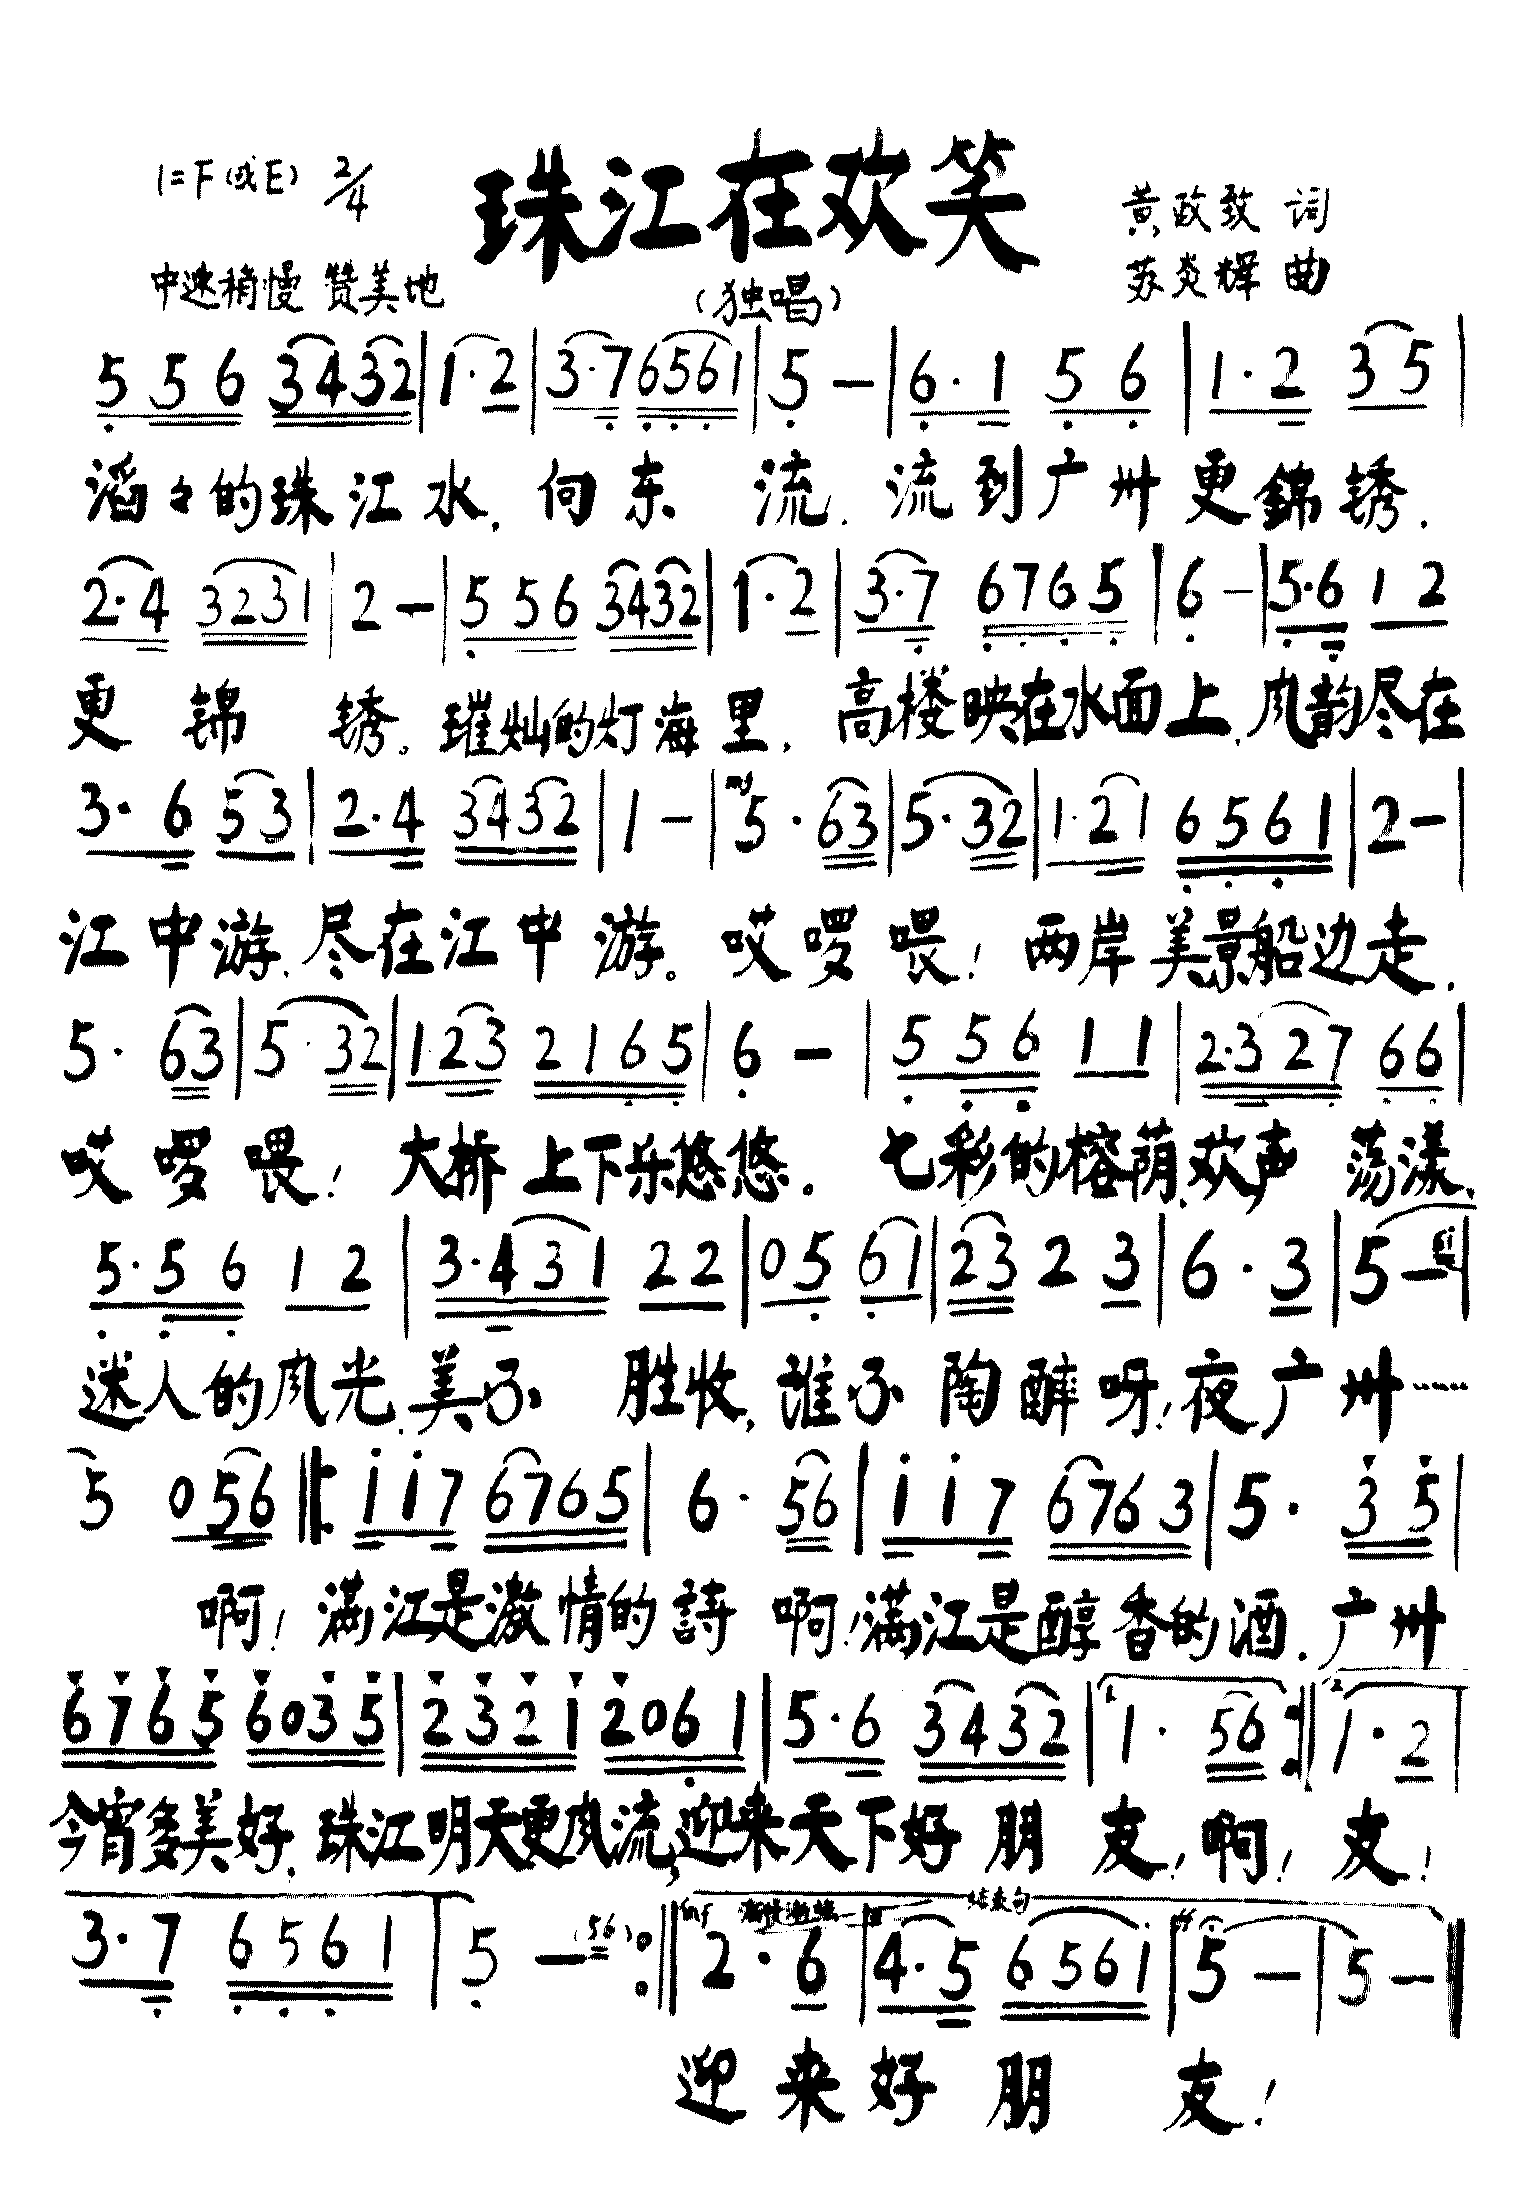 珠江在欢笑
1=F(或E) 2/4
黄政致 词
中速稍慢 赞美地
(独唱)
苏炎辉 曲
5 5 6 3432 | 1·2 | 3·7 6561 | 5 — | 6·1 5 6 | 1·2 3 5 |
滔々的珠江水,向东 流.流到广州更錦锈.
2·4 3231 | 2 — | 5 5 6 3432 | 1·2 | 3·7 6765 | 6 — | 5·6 1 2
更 锦 锈。璀灿的灯海里.高楼映在水面上.风韵尽在
3·6 5 3 | 2·4 3432 | 1 — | mf 5·63 | 5·32 | 1·21 6561 | 2 —
江中游.尽在江中 游。哎啰喂!两岸美景船边走.
5·63 | 5·32 | 1·23 2165 | 6 — | 5 5 6 1 1 | 2·327 66
哎啰喂!大桥上下乐悠悠.七彩的榕荫.欢声 荡漾.
5·5 6 1 2 | 3·431 22 | 05 61 | 23 2 3 | 6·3 | 5 —
迷人的风光.美不 胜收,谁不陶醉呀!夜广州……
5 056 |: i i 7 6765 | 6·56 | i i 7 6763 | 5·3 5 |
啊!满江是激情的詩 啊!满江是醇香的酒.广州
6765 6035 | 2321 2061 | 5·6 3432 | 1. 1·56 :| 2. 1·2 |
今宵多美好.珠江明天更风流,迎来天下好朋 友!啊!友!
3·7 6561 | 5 — (56) :| mf 结束句 2·6 | 4·5 656i | ff 5 — | 5 —
迎来好朋 友!